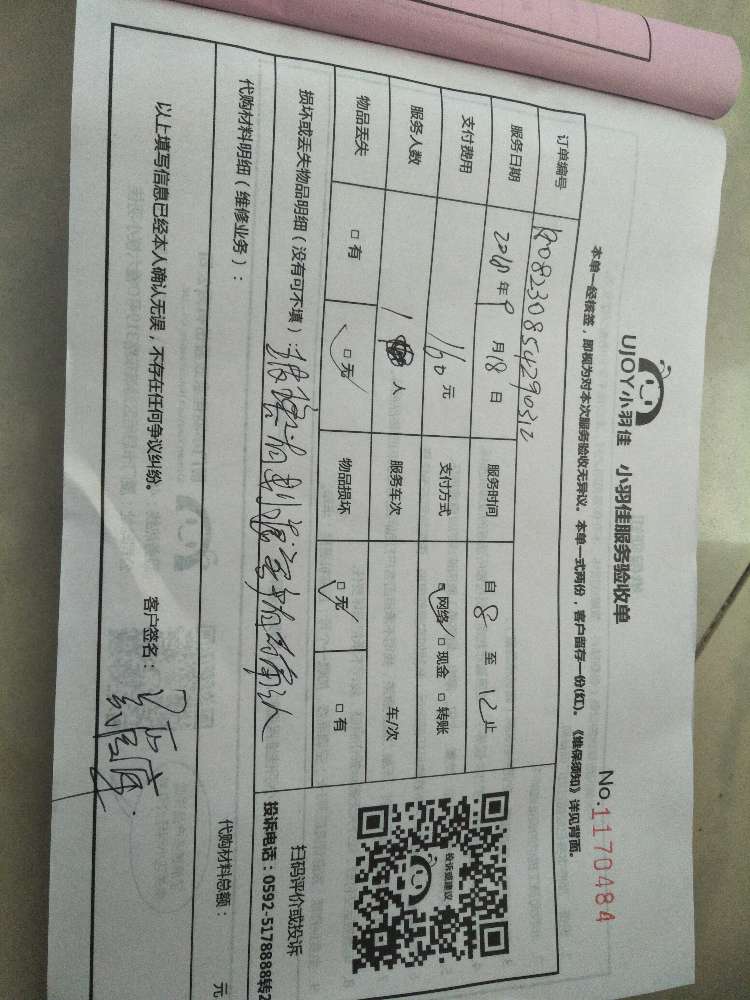 UJOY小羽佳 小羽佳服务验收单
No.1170484
本单一经核签，即视为对本次服务验收无异议。本单一式两份，客户留存一份(红)。《维保须知》详见背面。
订单编号
服务日期 2018年9月18日 服务时间 自 8 至 12 止
支付费用 160元 支付方式 □网络 □现金 □转账
服务人数 1 人 服务车次 车/次
物品丢失 □有 □无 物品损坏 □无 □有
投诉或建议
扫码评价或投诉
投诉电话：0592-5178888转2
损坏或丢失物品明细（没有可不填）：
代购材料明细（维修业务）：
代购材料总额： 元
以上填写信息已经本人确认无误，不存在任何争议纠纷。 客户签名：